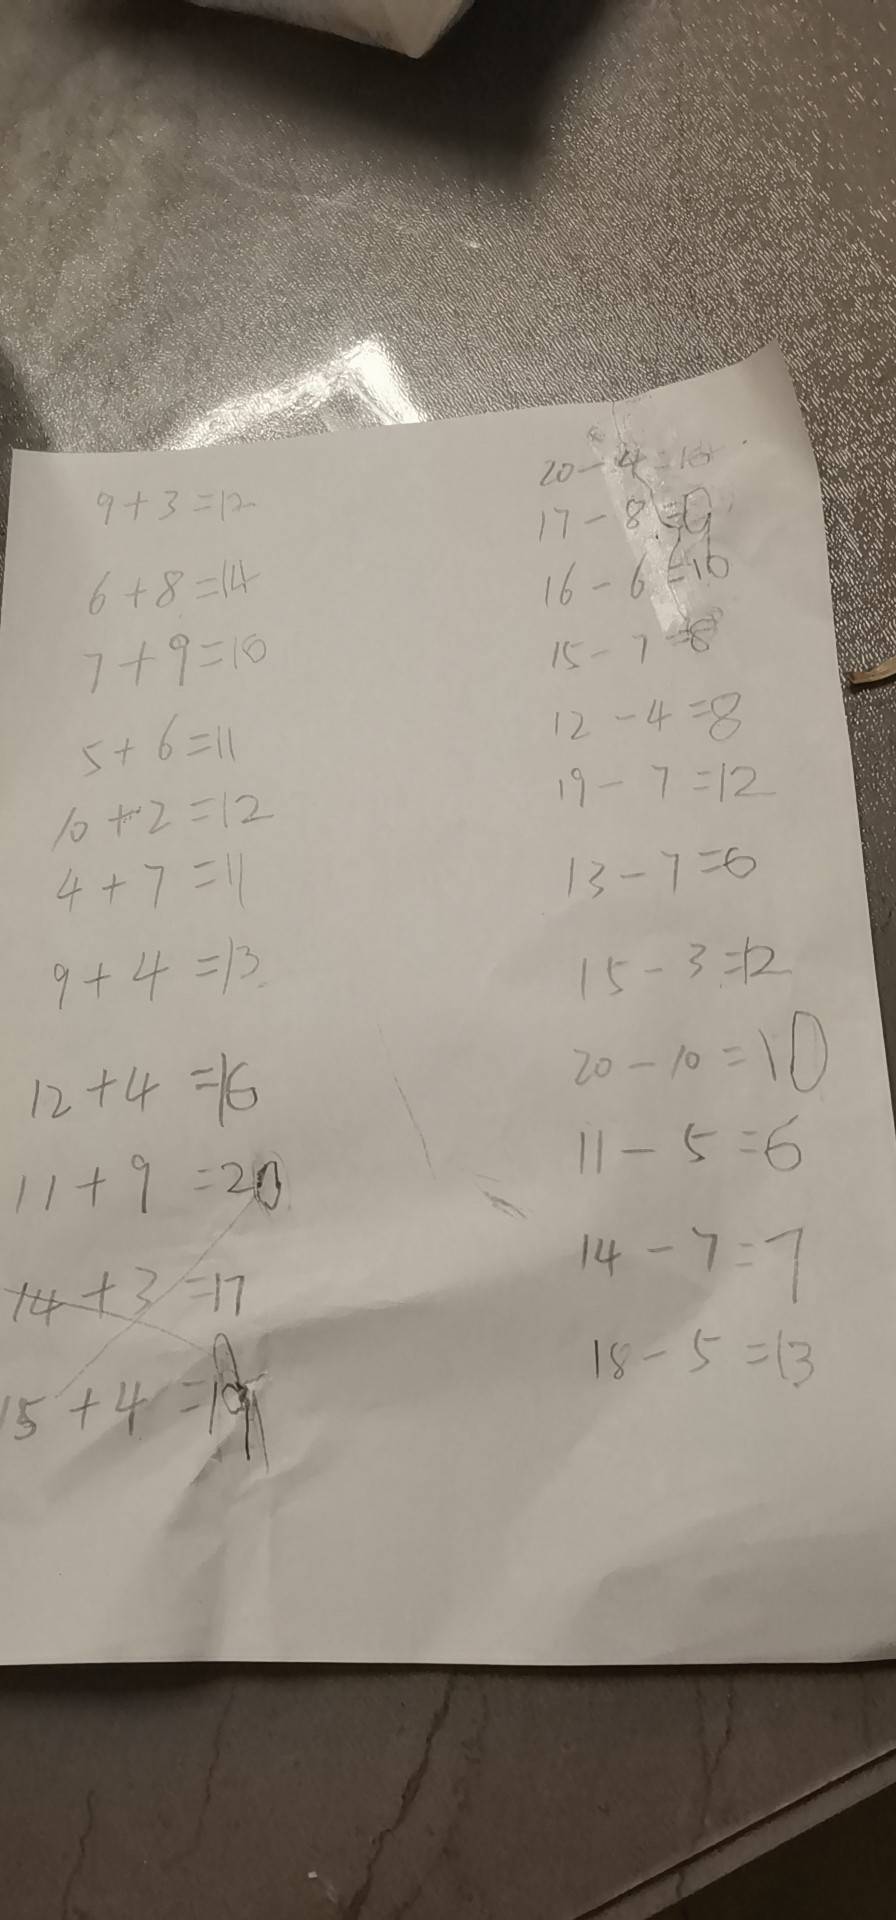 9+3=12
6+8=14
7+9=16
5+6=11
10+2=12
4+7=11
9+4=13
12+4=16
11+9=20
14+3=17
15+4=19
20-4=16
17-8=9
16-6=10
15-7=8
12-4=8
19-7=12
13-7=6
15-3=12
20-10=10
11-5=6
14-7=7
18-5=13